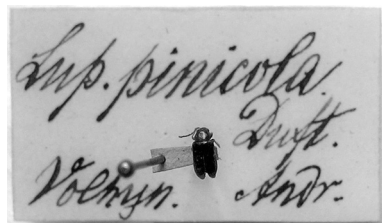 Lup. pinicola
Duft.
Volhyn. Andr.